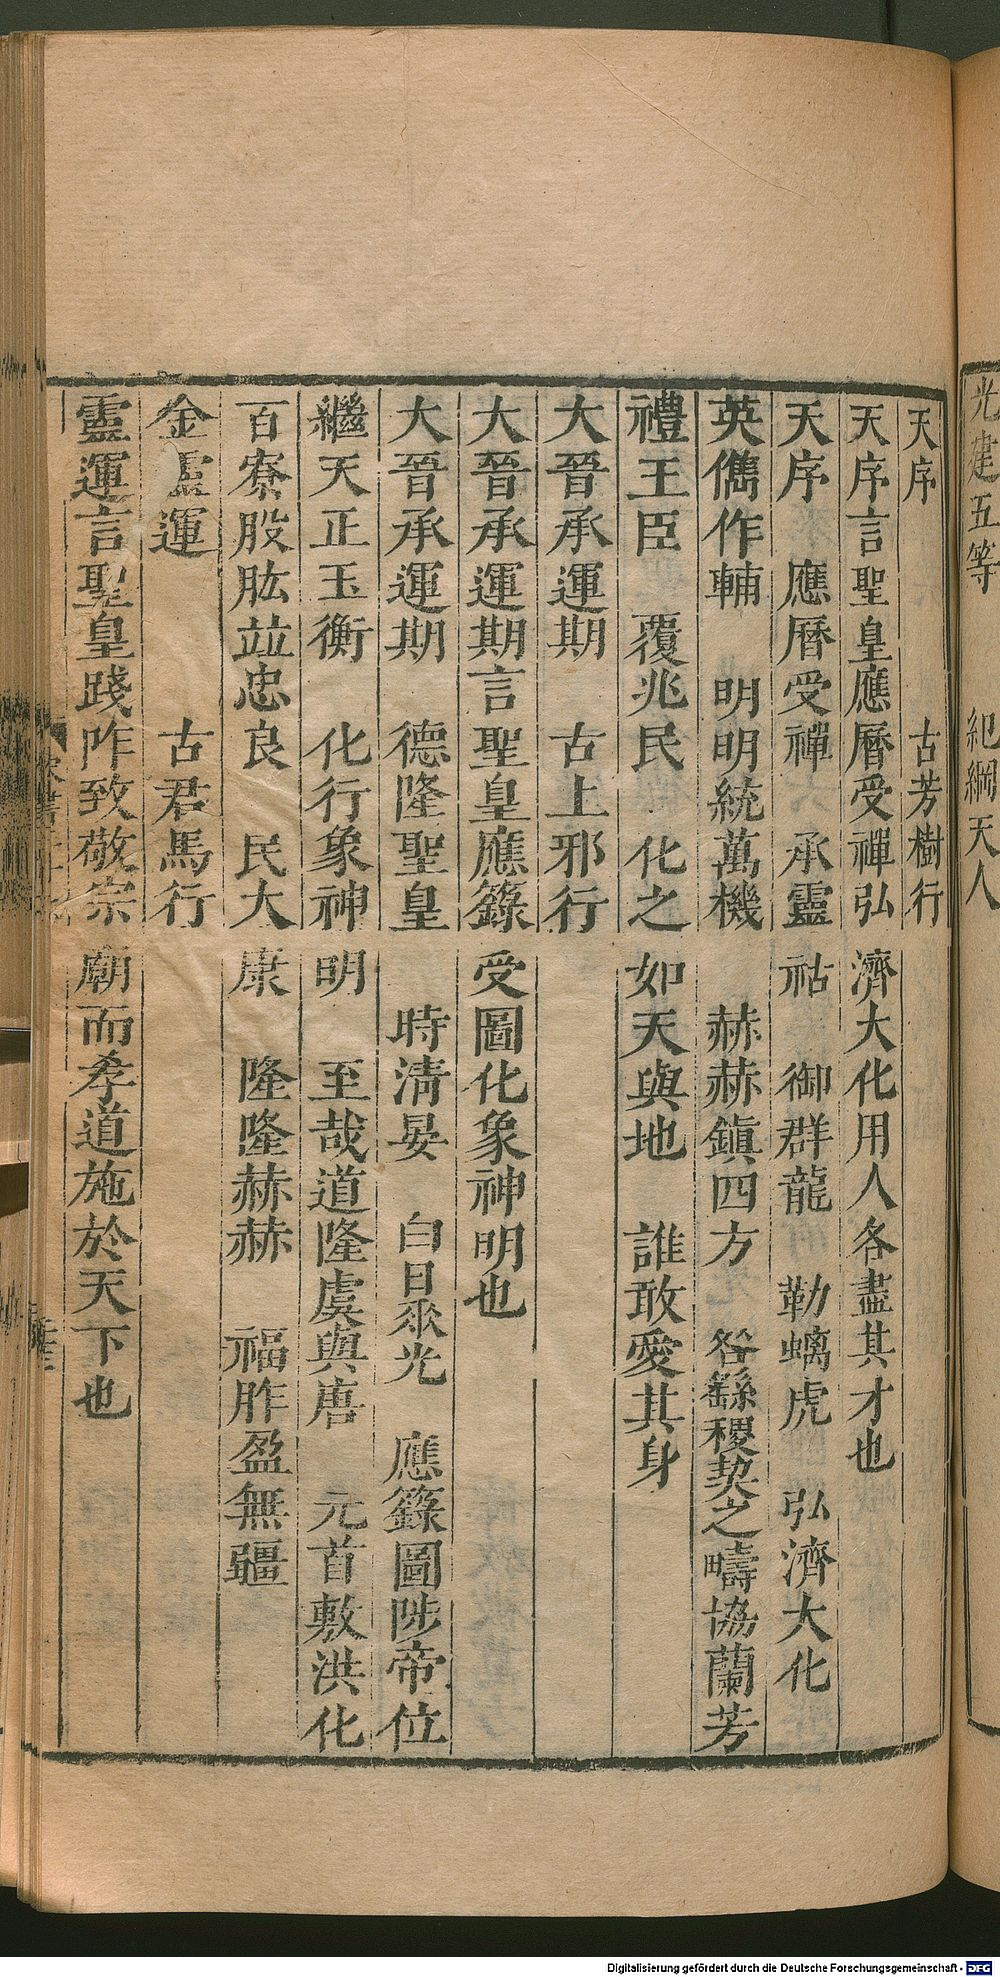 光建五等　紀綱天人
天序　古芳樹行
天序言聖皇應曆受禪弘濟大化用人各盡其才也
天序　應曆受禪　承靈祜　御群龍　勒螭虎　弘濟大化
英儁作輔　明明統萬機　赫赫鎮四方　咎繇稷契之疇協蘭芳
禮王臣　覆兆民　化之如天與地　誰敢愛其身
大晉承運期　古上邪行
大晉承運期言聖皇應籙受圖化象神明也
大晉承運期　德隆聖皇　時清晏　白日垂光　應籙圖陟帝位
繼天正玉衡　化行象神明　至哉道隆虞與唐　元首敷洪化
百寮股肱竝忠良　民大康　隆隆赫赫　福胙盈無疆
金靈運　古君馬行
靈運言聖皇踐阼致敬宗廟而孝道施於天下也
Digitalisierung gefördert durch die Deutsche Forschungsgemeinschaft - DFG